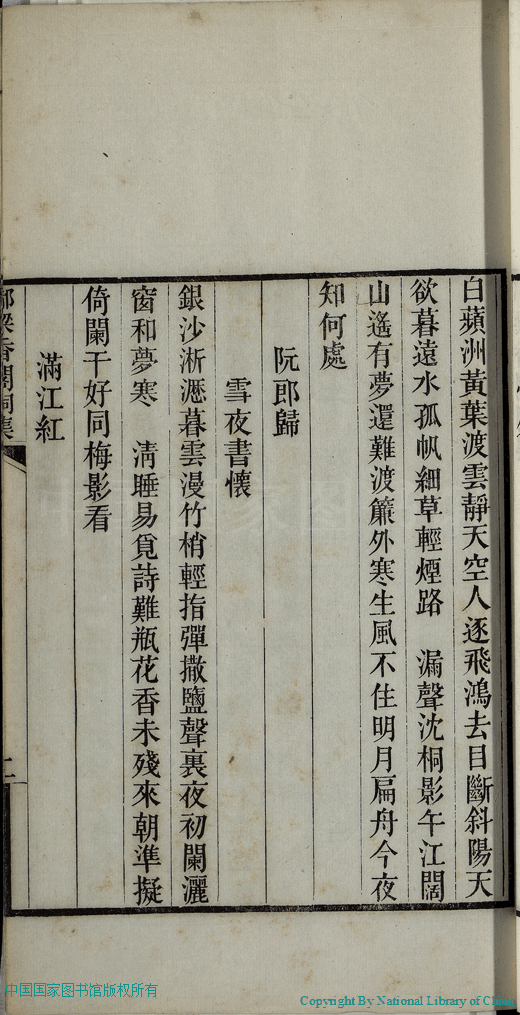 白蘋洲黃葉渡雲靜天空人逐飛鴻去目斷斜陽天
欲暮遠水孤帆細草輕煙路　漏聲沈桐影午江闊
山遙有夢還難渡簾外寒生風不住明月扁舟今夜
知何處
阮郎歸
雪夜書懷
銀沙淅瀝暮雲漫竹梢輕指彈撒鹽聲裏夜初闌灑
窗和夢寒　清睡易覓詩難瓶花香未殘來朝準擬
倚闌干好同梅影看
滿江紅
香閣詞集
二
中国国家图书馆版权所有
Copyright By National Library of China